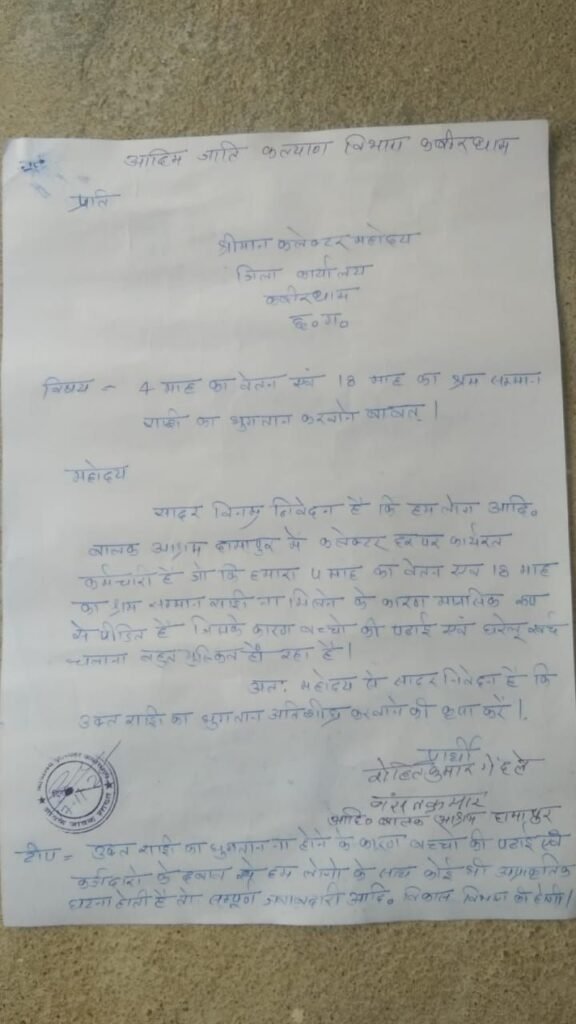 आदिम जाति कल्याण विभाग कबीरधाम
प्रति
श्रीमान कलेक्टर महोदय
जिला कार्यालय
कबीरधाम
छ० ग०
विषय = 4 माह का वेतन एवं 18 माह का श्रम सम्मान
राशी का भुगतान करवाने बाबत् ।
महोदय
सादर विनम्र निवेदन है कि हम लोग आदि०
बालक आश्रम दामापुर में कलेक्टर दर पर कार्यरत
कर्मचारी है जो कि हमारा 4 माह का वेतन एवं 18 माह
का श्रम सम्मान राशी ना मिलने के कारण मानसिक रूप
से पीडित है जिसके कारण बच्चो की पढाई एवं घरेलू खर्च
चलाना बहुत मुश्किल हो रहा है ।
अतः महोदय से सादर निवेदन है कि
उक्त राशी का भुगतान अतिशीघ्र करवाने की कृपा करें ।
प्रार्थी
रोहित कुमार गेंदले
बसंत कुमार
आदि० बालक आश्रम दामापुर
टीप = उक्त राशी का भुगतान ना होने के कारण बच्चो की पढाई एवं
कर्जदारो के दबाव से हम लोगो के साथ कोई भी अप्राकृतिक
घटना होती है तो सम्पूर्ण जवाबदारी आदि० विकास विभाग की होगी ।